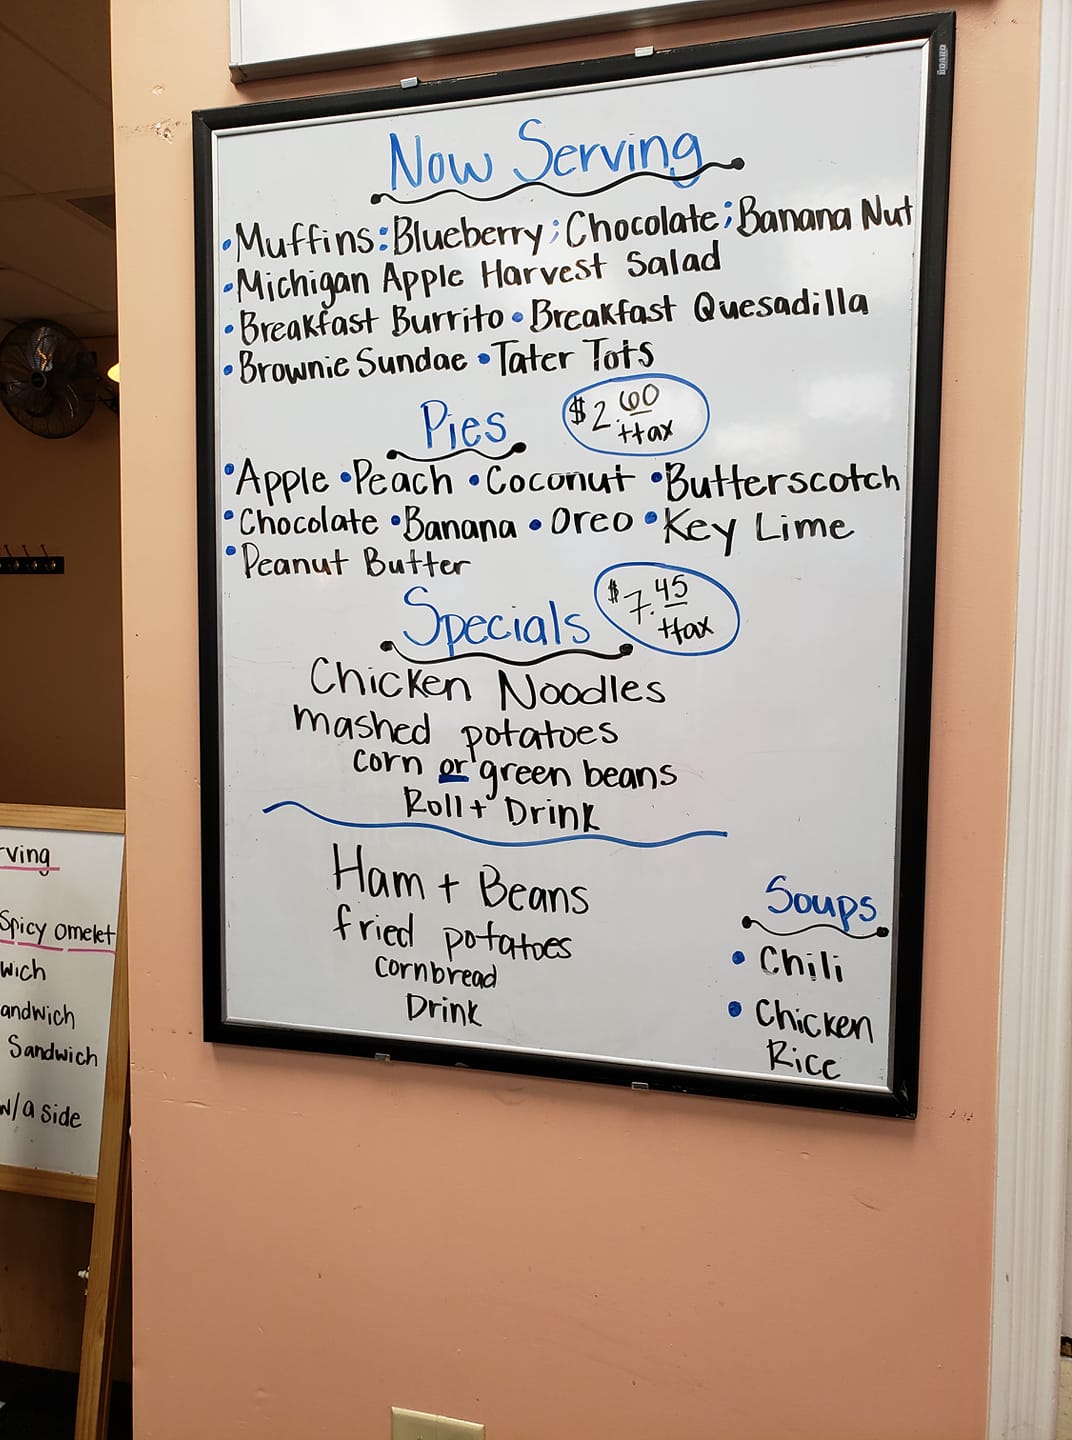 BOARD
Now Serving
•Muffins: Blueberry; Chocolate; Banana Nut
•Michigan Apple Harvest Salad
•Breakfast Burrito •Breakfast Quesadilla
•Brownie Sundae •Tater Tots
Pies $2.60 +tax
•Apple •Peach •Coconut •Butterscotch
•Chocolate •Banana •Oreo •Key Lime
•Peanut Butter
Specials $7.45 +tax
Chicken Noodles
mashed potatoes
corn or green beans
Roll + Drink
Ham + Beans
fried potatoes
cornbread
Drink
Soups
• Chili
• Chicken
Rice
rving
Spicy omelet
wich
andwich
Sandwich
w/a side